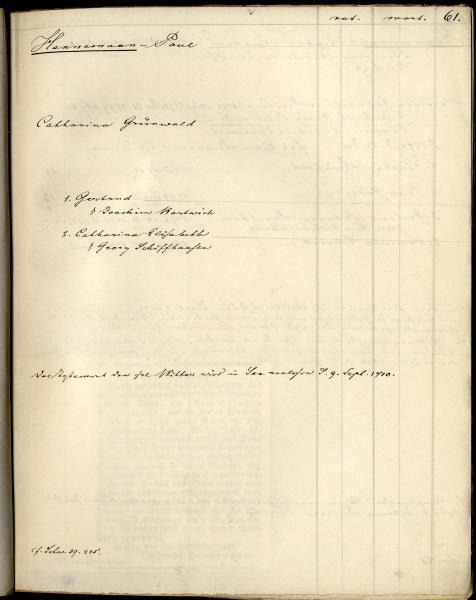 nat. mort. 61.
Hannemann - Paul
Catharina Grünwald
1. Gertrud
§ Joachim Hartwich
2. Catharina Elisabeth
§ Georg Schiffhausen
Das Testament der sel Mutter wird in 9. Sept. 1710.
cf. Schw. 39. 205.